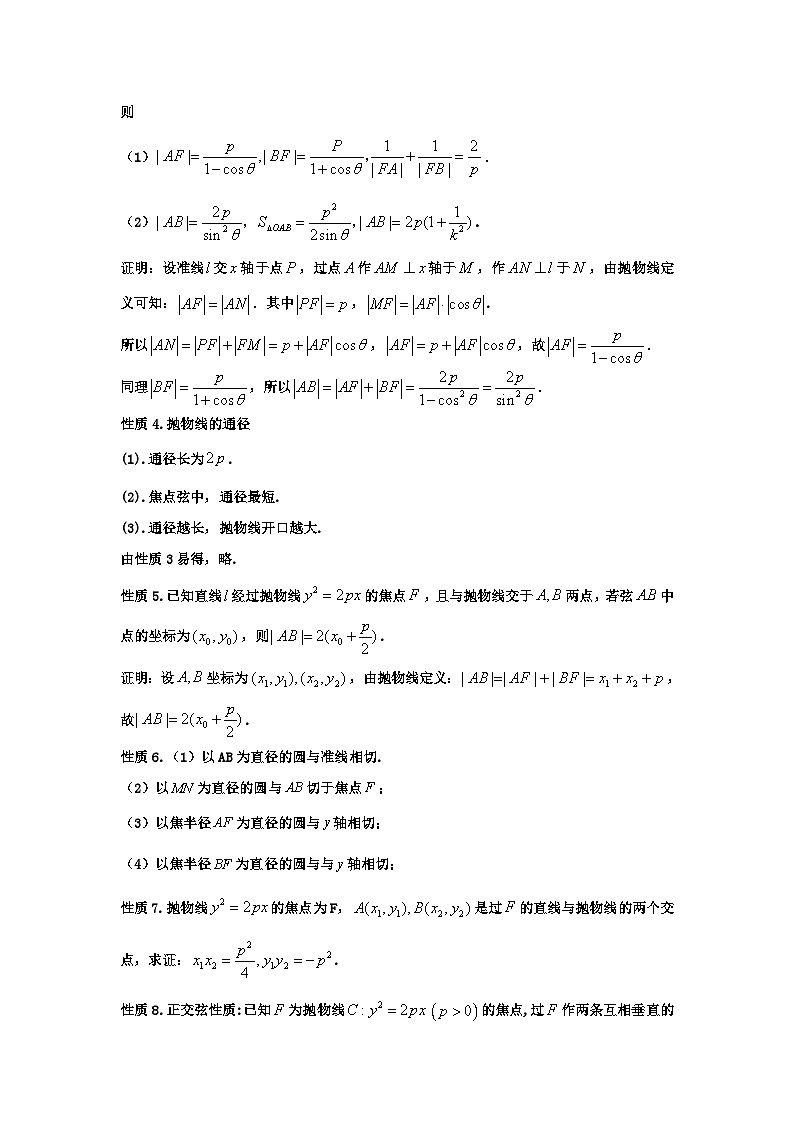 则
(1)| AF |= p/(1−cosθ) ,| BF |= P/(1+cosθ) , 1/| FA | + 1/| FB | = 2/p .
(2)| AB |= 2p/sin²θ , S△OAB = p²/(2sinθ) ,| AB |= 2p(1+1/k²) .
证明：设准线l交x轴于点P，过点A作AM ⊥ x轴于M，作AN ⊥ l于N，由抛物线定
义可知：|AF| = |AN|．其中|PF| = p，|MF| = |AF|·cosθ.
所以|AN| = |PF| + |FM| = p + |AF|cosθ，|AF| = p + |AF|cosθ，故|AF| = p/(1−cosθ) .
同理|BF| = p/(1+cosθ)，所以|AB| = |AF| + |BF| = 2p/(1−cos²θ) = 2p/sin²θ .
性质 4.抛物线的通径
(1).通径长为2p .
(2).焦点弦中，通径最短.
(3).通径越长，抛物线开口越大.
由性质 3 易得，略.
性质 5.已知直线l经过抛物线y² = 2px的焦点F，且与抛物线交于A, B两点，若弦AB中
点的坐标为(x₀, y₀)，则| AB |= 2(x₀ + p/2) .
证明：设A, B坐标为(x₁, y₁), (x₂, y₂)，由抛物线定义：| AB |=| AF | + | BF |= x₁ + x₂ + p，
故| AB |= 2(x₀ + p/2) .
性质 6.（1）以 AB 为直径的圆与准线相切.
（2）以MN为直径的圆与AB切于焦点F；
（3）以焦半径AF为直径的圆与y轴相切；
（4）以焦半径BF为直径的圆与与y轴相切；
性质 7.抛物线y² = 2px的焦点为 F，A(x₁, y₁), B(x₂, y₂)是过F的直线与抛物线的两个交
点，求证：x₁x₂ = p²/4 , y₁y₂ = −p² .
性质 8.正交弦性质:已知F为抛物线C : y² = 2px (p > 0)的焦点,过F作两条互相垂直的